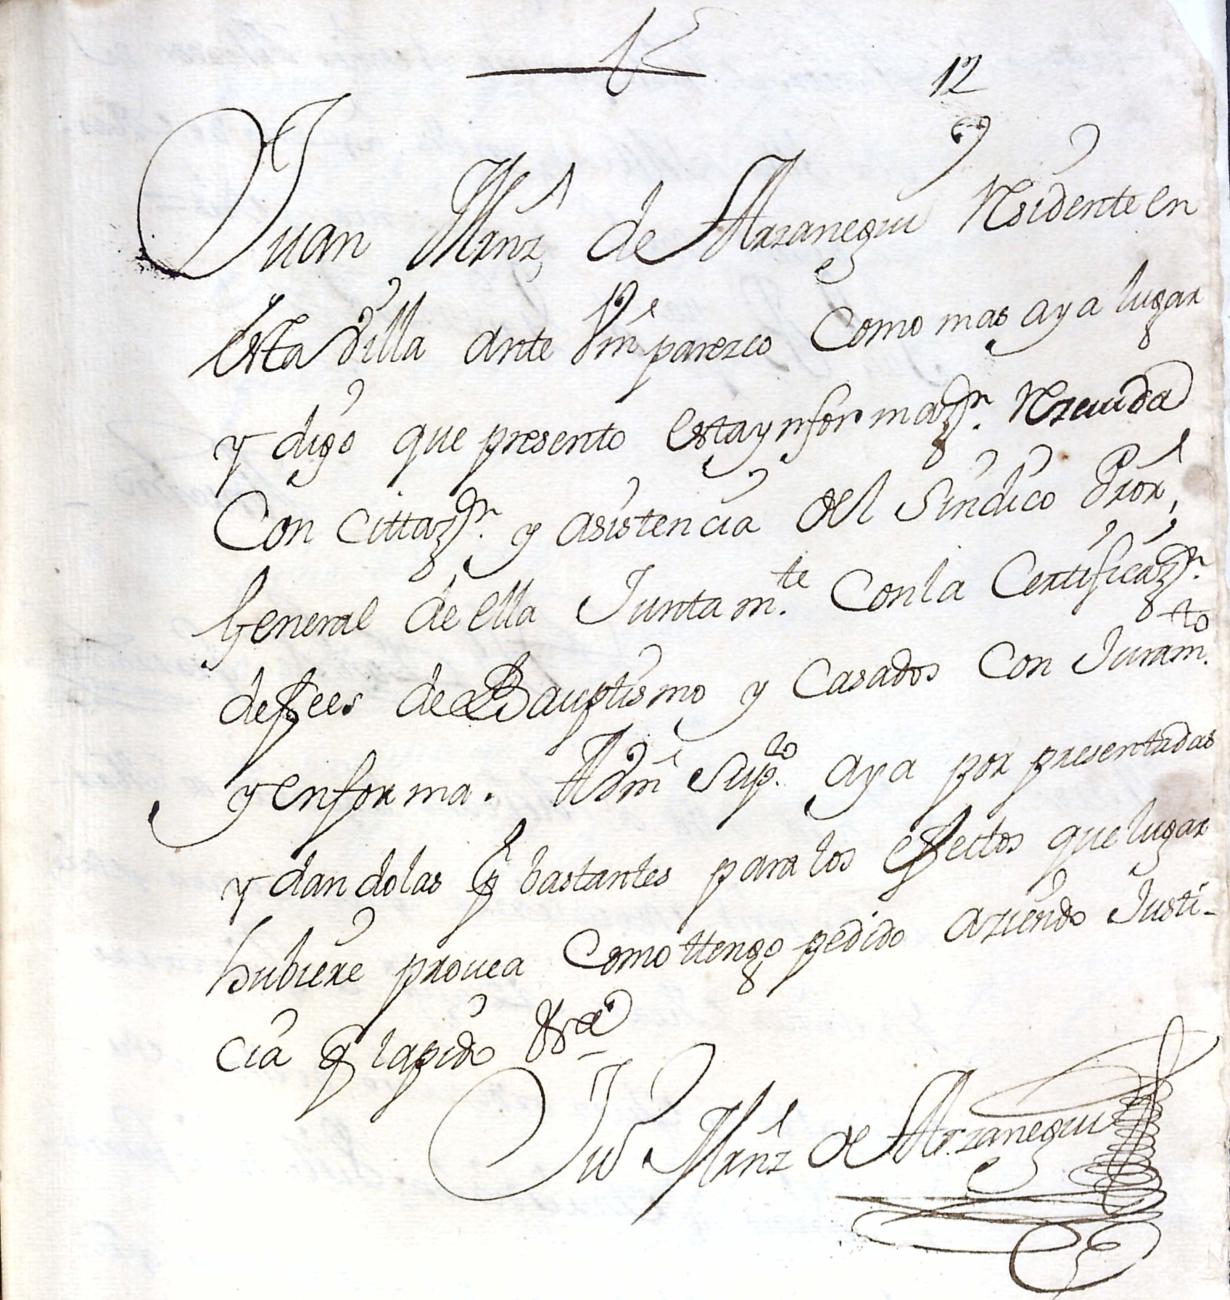 12
Juan Mrnz de Arzanegui Residente en
esta Villa ante Vm parezco Como mas aya lugar
y digo que presento esta ynformazn. Rezeuida
Con Cittazn. y asistencia del Sindico Pror,
General de ella Juntamte. Con la Certificazn.
de fees de Bauptismo y Casados Con Juramto.
y en forma. A Vm Supco. aya por presentadas
y dandolas por bastantes para los efectos que lugar
hubiere prouea Como ttengo pedido aziendo Justi-
cia que la pido &ra
Juo Mrnz de Arzanegui